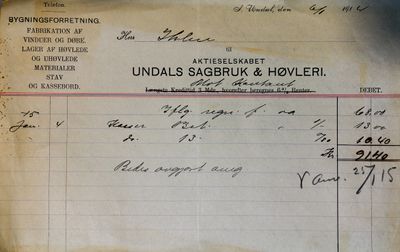 Telefon.
BYGNINGSFORRETNING.
FABRIKATION AF
VINDUER OG DØRE.
LAGER AF HØVLEDE
OG UHØVLEDE
MATERIALER
STAV
OG KASSEBORD.
S. Undal, den 6/1 191
Herr
til
AKTIESELSKABET
UNDALS SAGBRUK & HØVLERI.
Mot Kontant
Længste Kredittid 3 Mdr., hvorefter beregnes 6% Renter.
DEBET.
15 Iflg. regn. f. 68.00
Jan. 4 Kasser 13.00
do. 13. 10.40
Kr. 91.40
Bedes avgjort
15